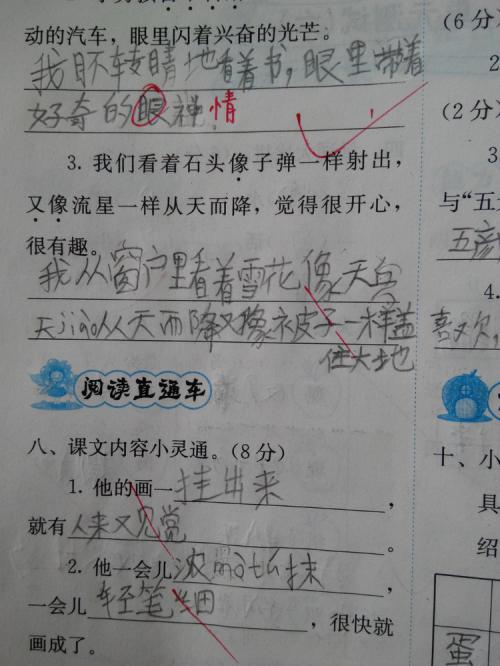 动的汽车，眼里闪着兴奋的光芒。
我目不转睛地看着书，眼里带着
好奇的眼神。情
3. 我们看着石头像子弹一样射出，
又像流星一样从天而降，觉得很开心，
很有趣。
我从窗户里看着雪花像天
天jiàng从天而降又像被子一样盖
住大地
阅读直通车
八、课文内容小灵通。(8分)
1. 他的画一挂出来，
就有人来又见赏。
2. 他一会儿浓抹，
一会儿轻笔细，很快就
画成了。
(6分
2
(2分
3
与“五
五彦
4.
喜欢，
十、小
具
绍
蛋